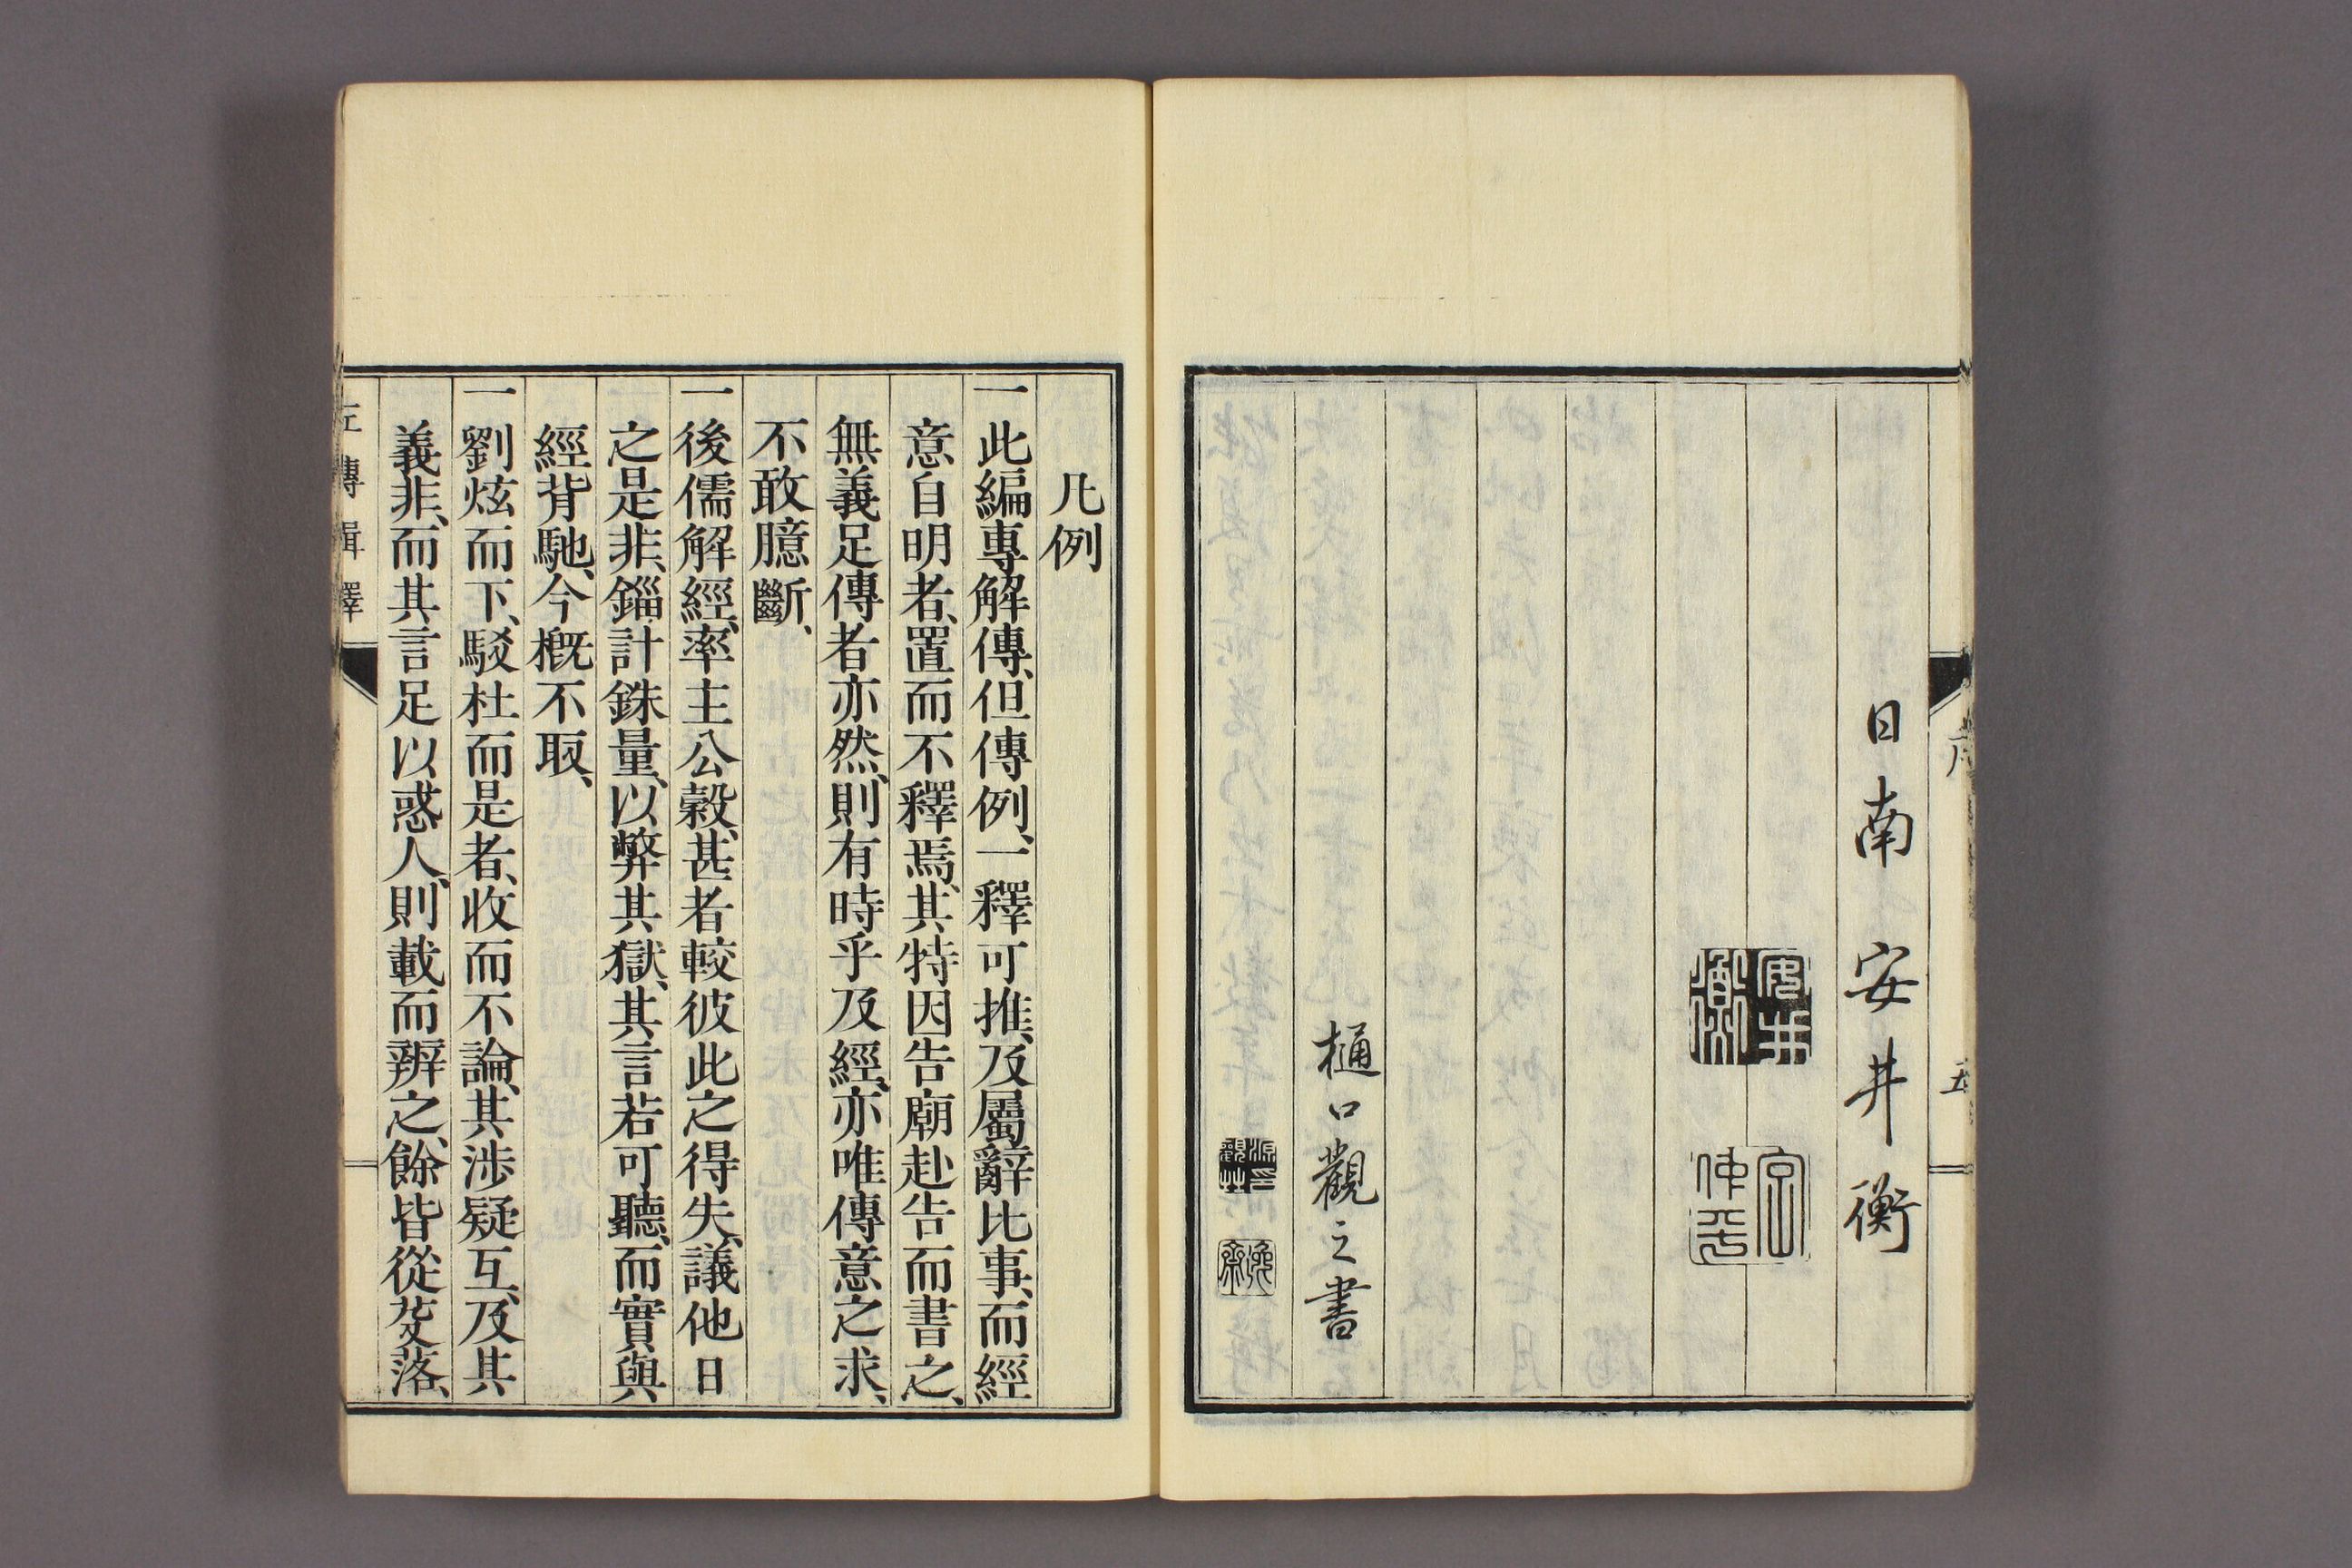 日南 安井衡
安井衡
字仲平
樋口觀之書
逸齋
序 五
凡例
一此編專解傳、但傳例、一釋可推、及屬辭比事、而經
意自明者、置而不釋焉、其特因告廟赴告而書之、
無義足傳者亦然、則有時乎及經、亦唯傳意之求、
不敢臆斷、
一後儒解經、率主公穀、甚者較彼此之得失、議他日
之是非、錙計銖量、以弊其獄、其言若可聽、而實與
經背馳、今概不取、
一劉炫而下、駁杜而是者、收而不論、其涉疑互、及其
義非、而其言足以惑人、則載而辨之、餘皆從芟落、
左傳輯釋